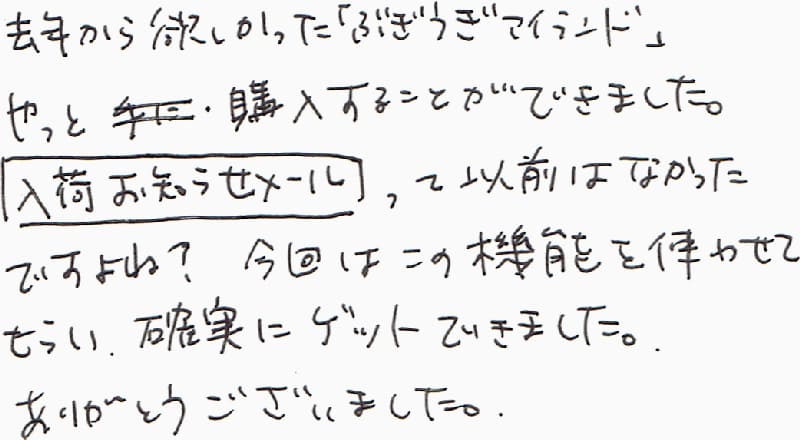 去年から欲しかった「ぶぎうぎアイランド」
やっと 購入することができました。
入荷お知らせメール、って以前はなかった
ですよね？ 今回はこの機能を使わせて
もらい、確実にゲットできました。
ありがとうございました。